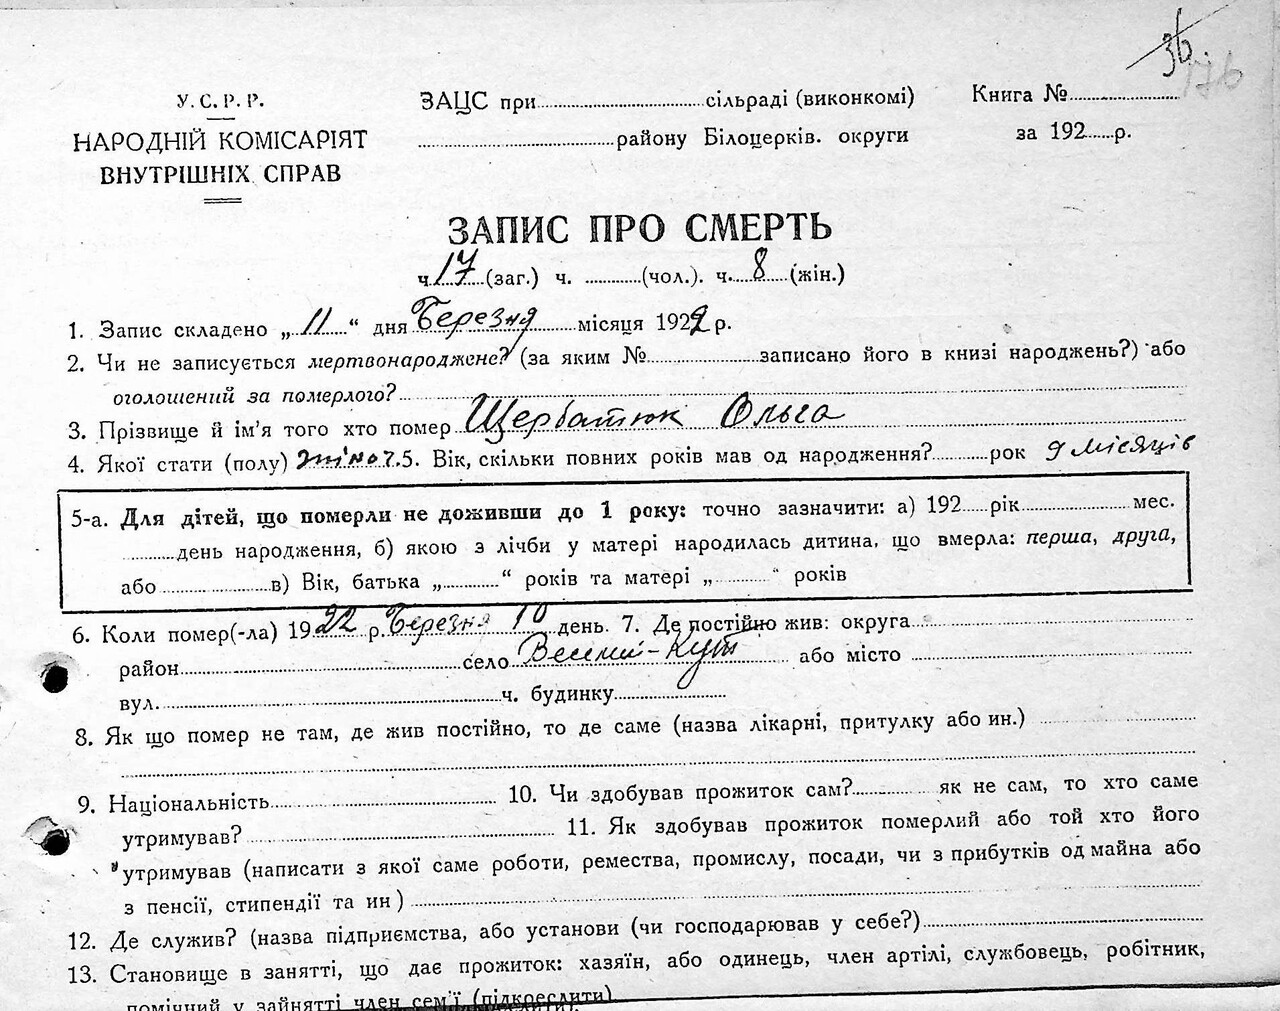 36
176
У. С. Р. Р.
НАРОДНІЙ КОМІСАРІЯТ
ВНУТРІШНІХ СПРАВ
ЗАЦС при сільраді (виконкомі)
району Білоцерків. округи
Книга №
за 192 р.
ЗАПИС ПРО СМЕРТЬ
ч. 17 (заг.) ч. (чол.). ч. 8 (жін.)
1. Запис складено „ 11 “ дня Березня місяця 1922 р.
2. Чи не записується мертвонароджене? (за яким № записано його в книзі народжень?) або
оголошений за померлого?
3. Прізвище й ім'я того хто помер Щербатюк Ольга
4. Якої стати (полу) жіноч. 5. Вік, скільки повних років мав од народження? рок 9 місяців
5-а. Для дітей, що померли не доживши до 1 року: точно зазначити: а) 192 рік мес.
день народження, б) якою з лічби у матері народилась дитина, що вмерла: перша, друга,
або в) Вік, батька „ “ років та матері „ “ років
6. Коли помер(-ла) 1922 р. Березня 10 день. 7. Де постійно жив: округа
район село Веселий-Кут або місто
вул. ч. будинку
8. Як що помер не там, де жив постійно, то де саме (назва лікарні, притулку або ин.)
9. Національність 10. Чи здобував прожиток сам? як не сам, то хто саме
утримував? 11. Як здобував прожиток померлий або той хто його
утримував (написати з якої саме роботи, ремества, промислу, посади, чи з прибутків од майна або
з пенсії, стипендії та ин)
12. Де служив? (назва підприємства, або установи (чи господарював у себе?)
13. Становище в занятті, що дає прожиток: хазяїн, або одинець, член артілі, службовець, робітник,
помічний у зайнятті член сем'ї (підкреслити).